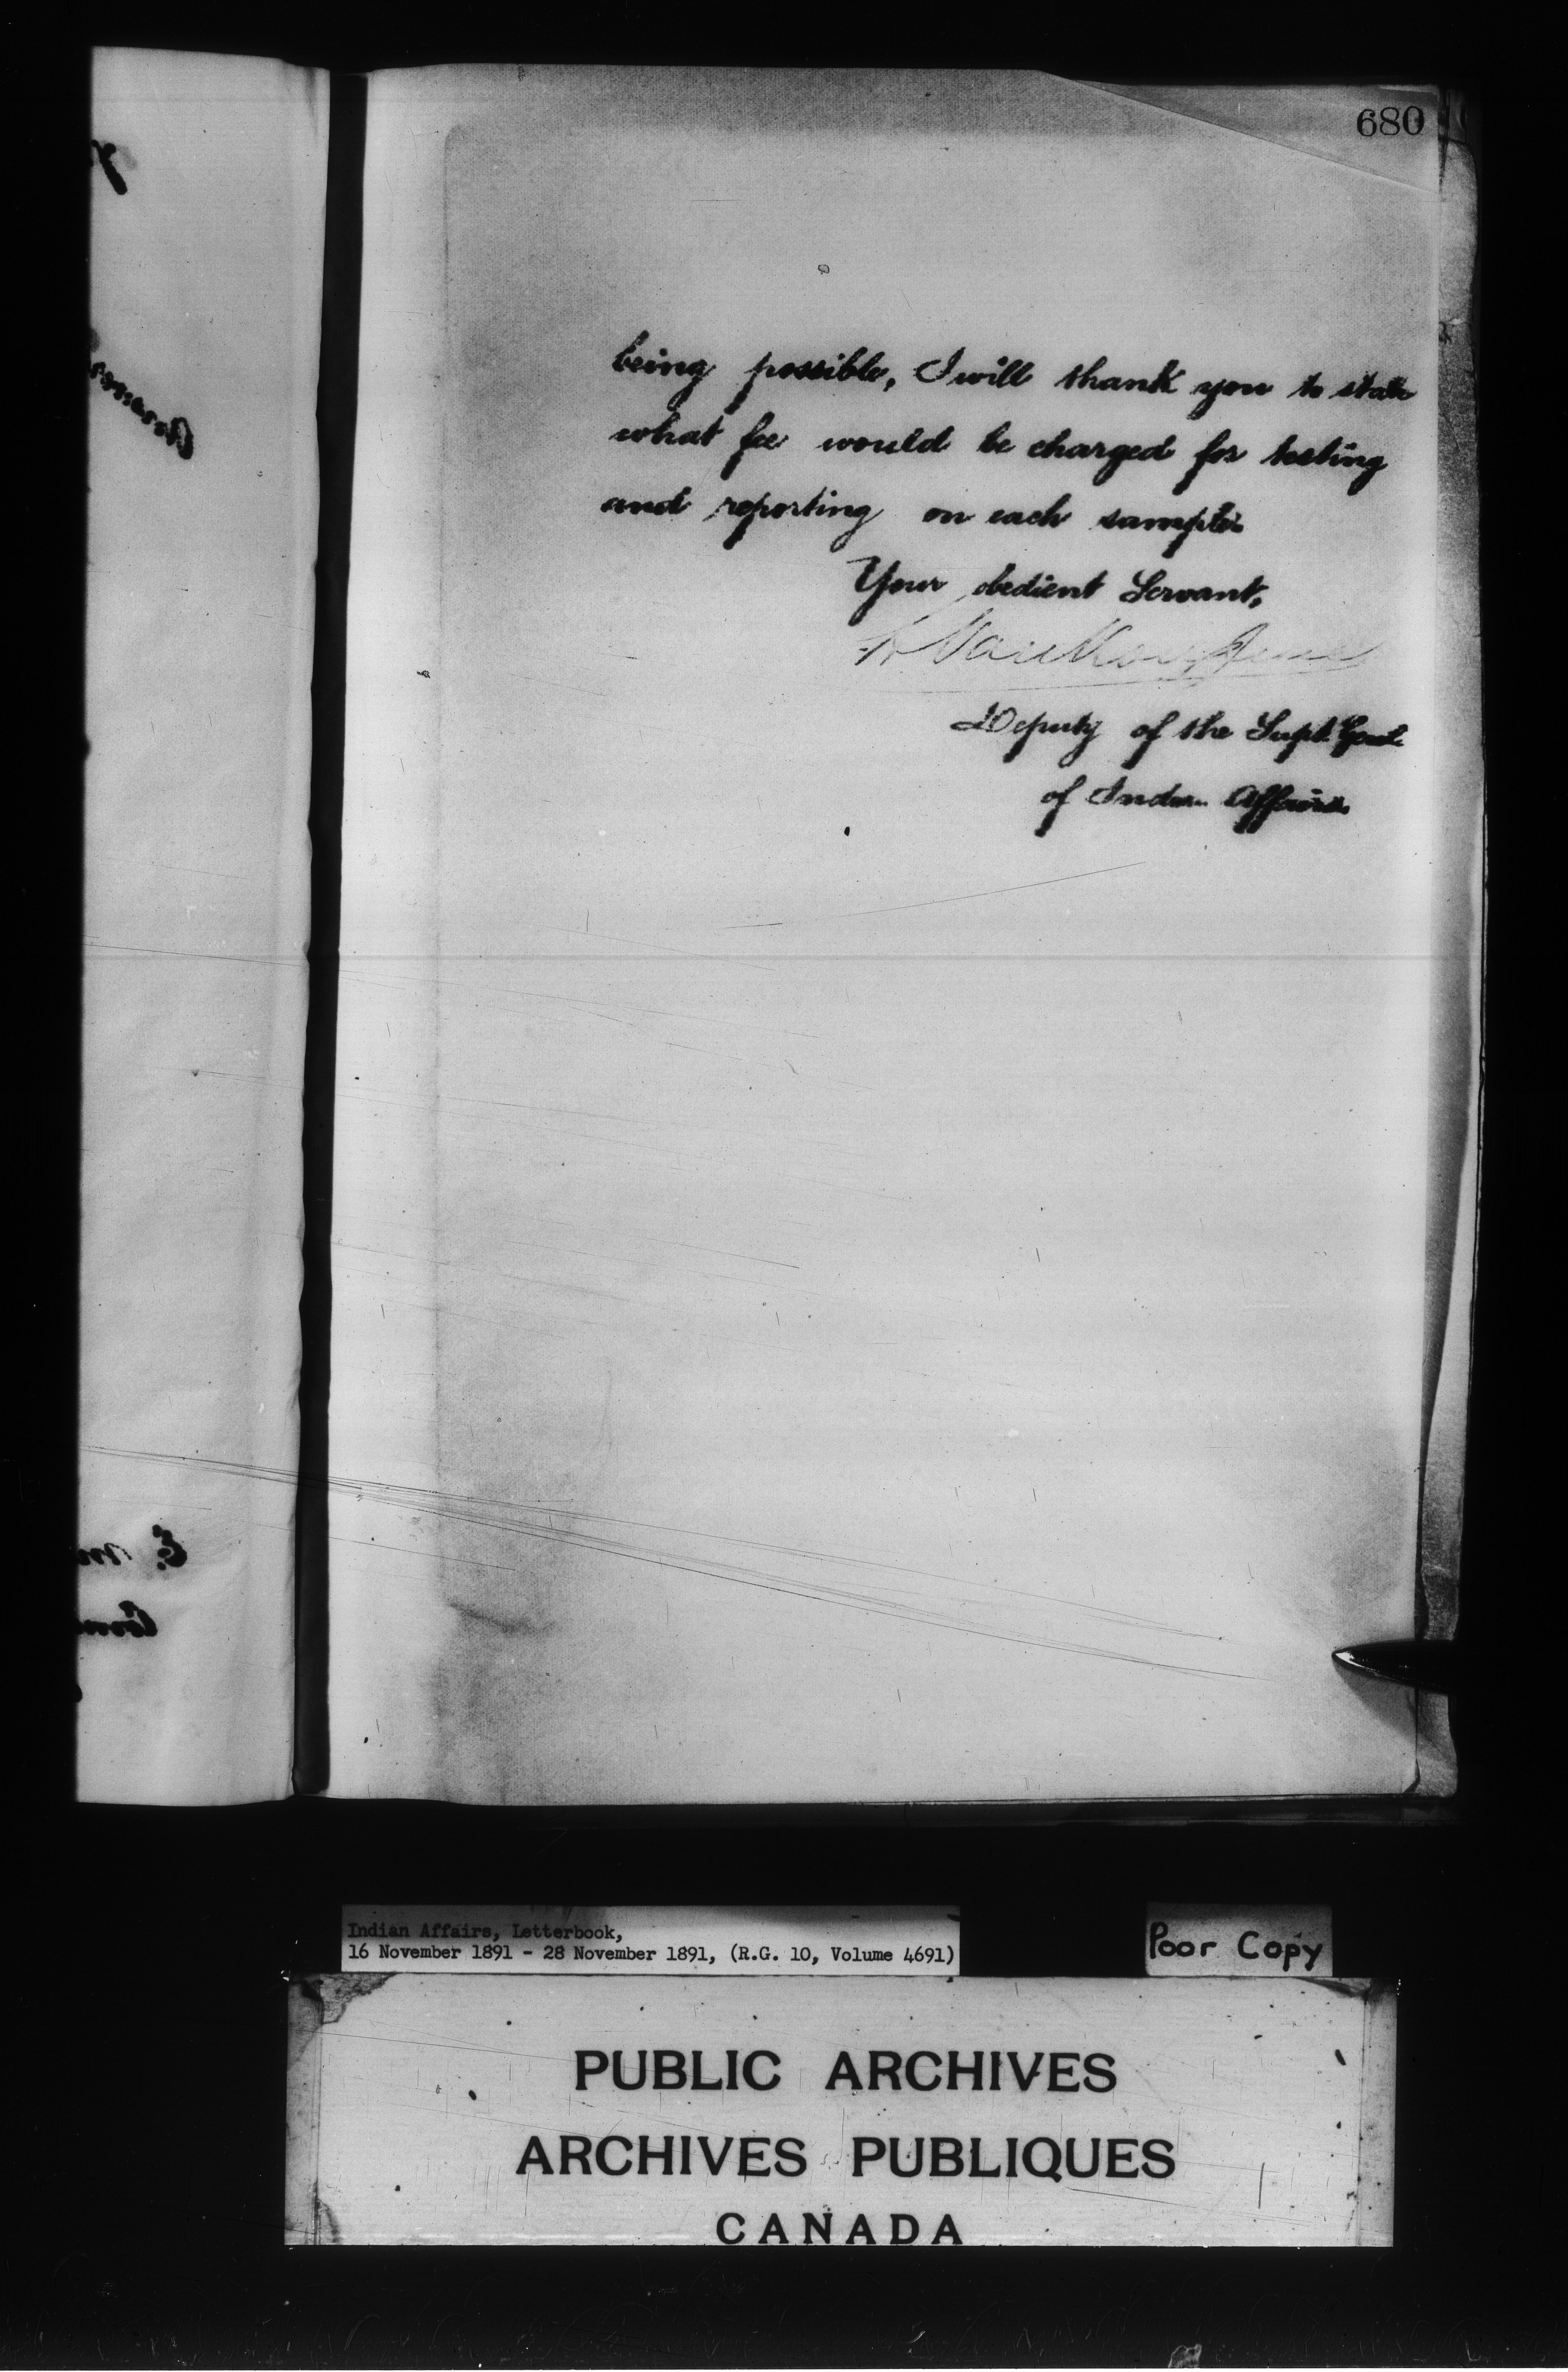 680
being possible, I will thank you to state
what fee would be charged for testing
and reporting on each sample.
Your obedient Servant,
L. VanKoughnet
Deputy of the Supt. Genl.
of Indian Affairs.
Indian Affairs, Letterbook,
16 November 1891 - 28 November 1891, (R.G. 10, Volume 4691)
Poor Copy
PUBLIC ARCHIVES
ARCHIVES PUBLIQUES
CANADA